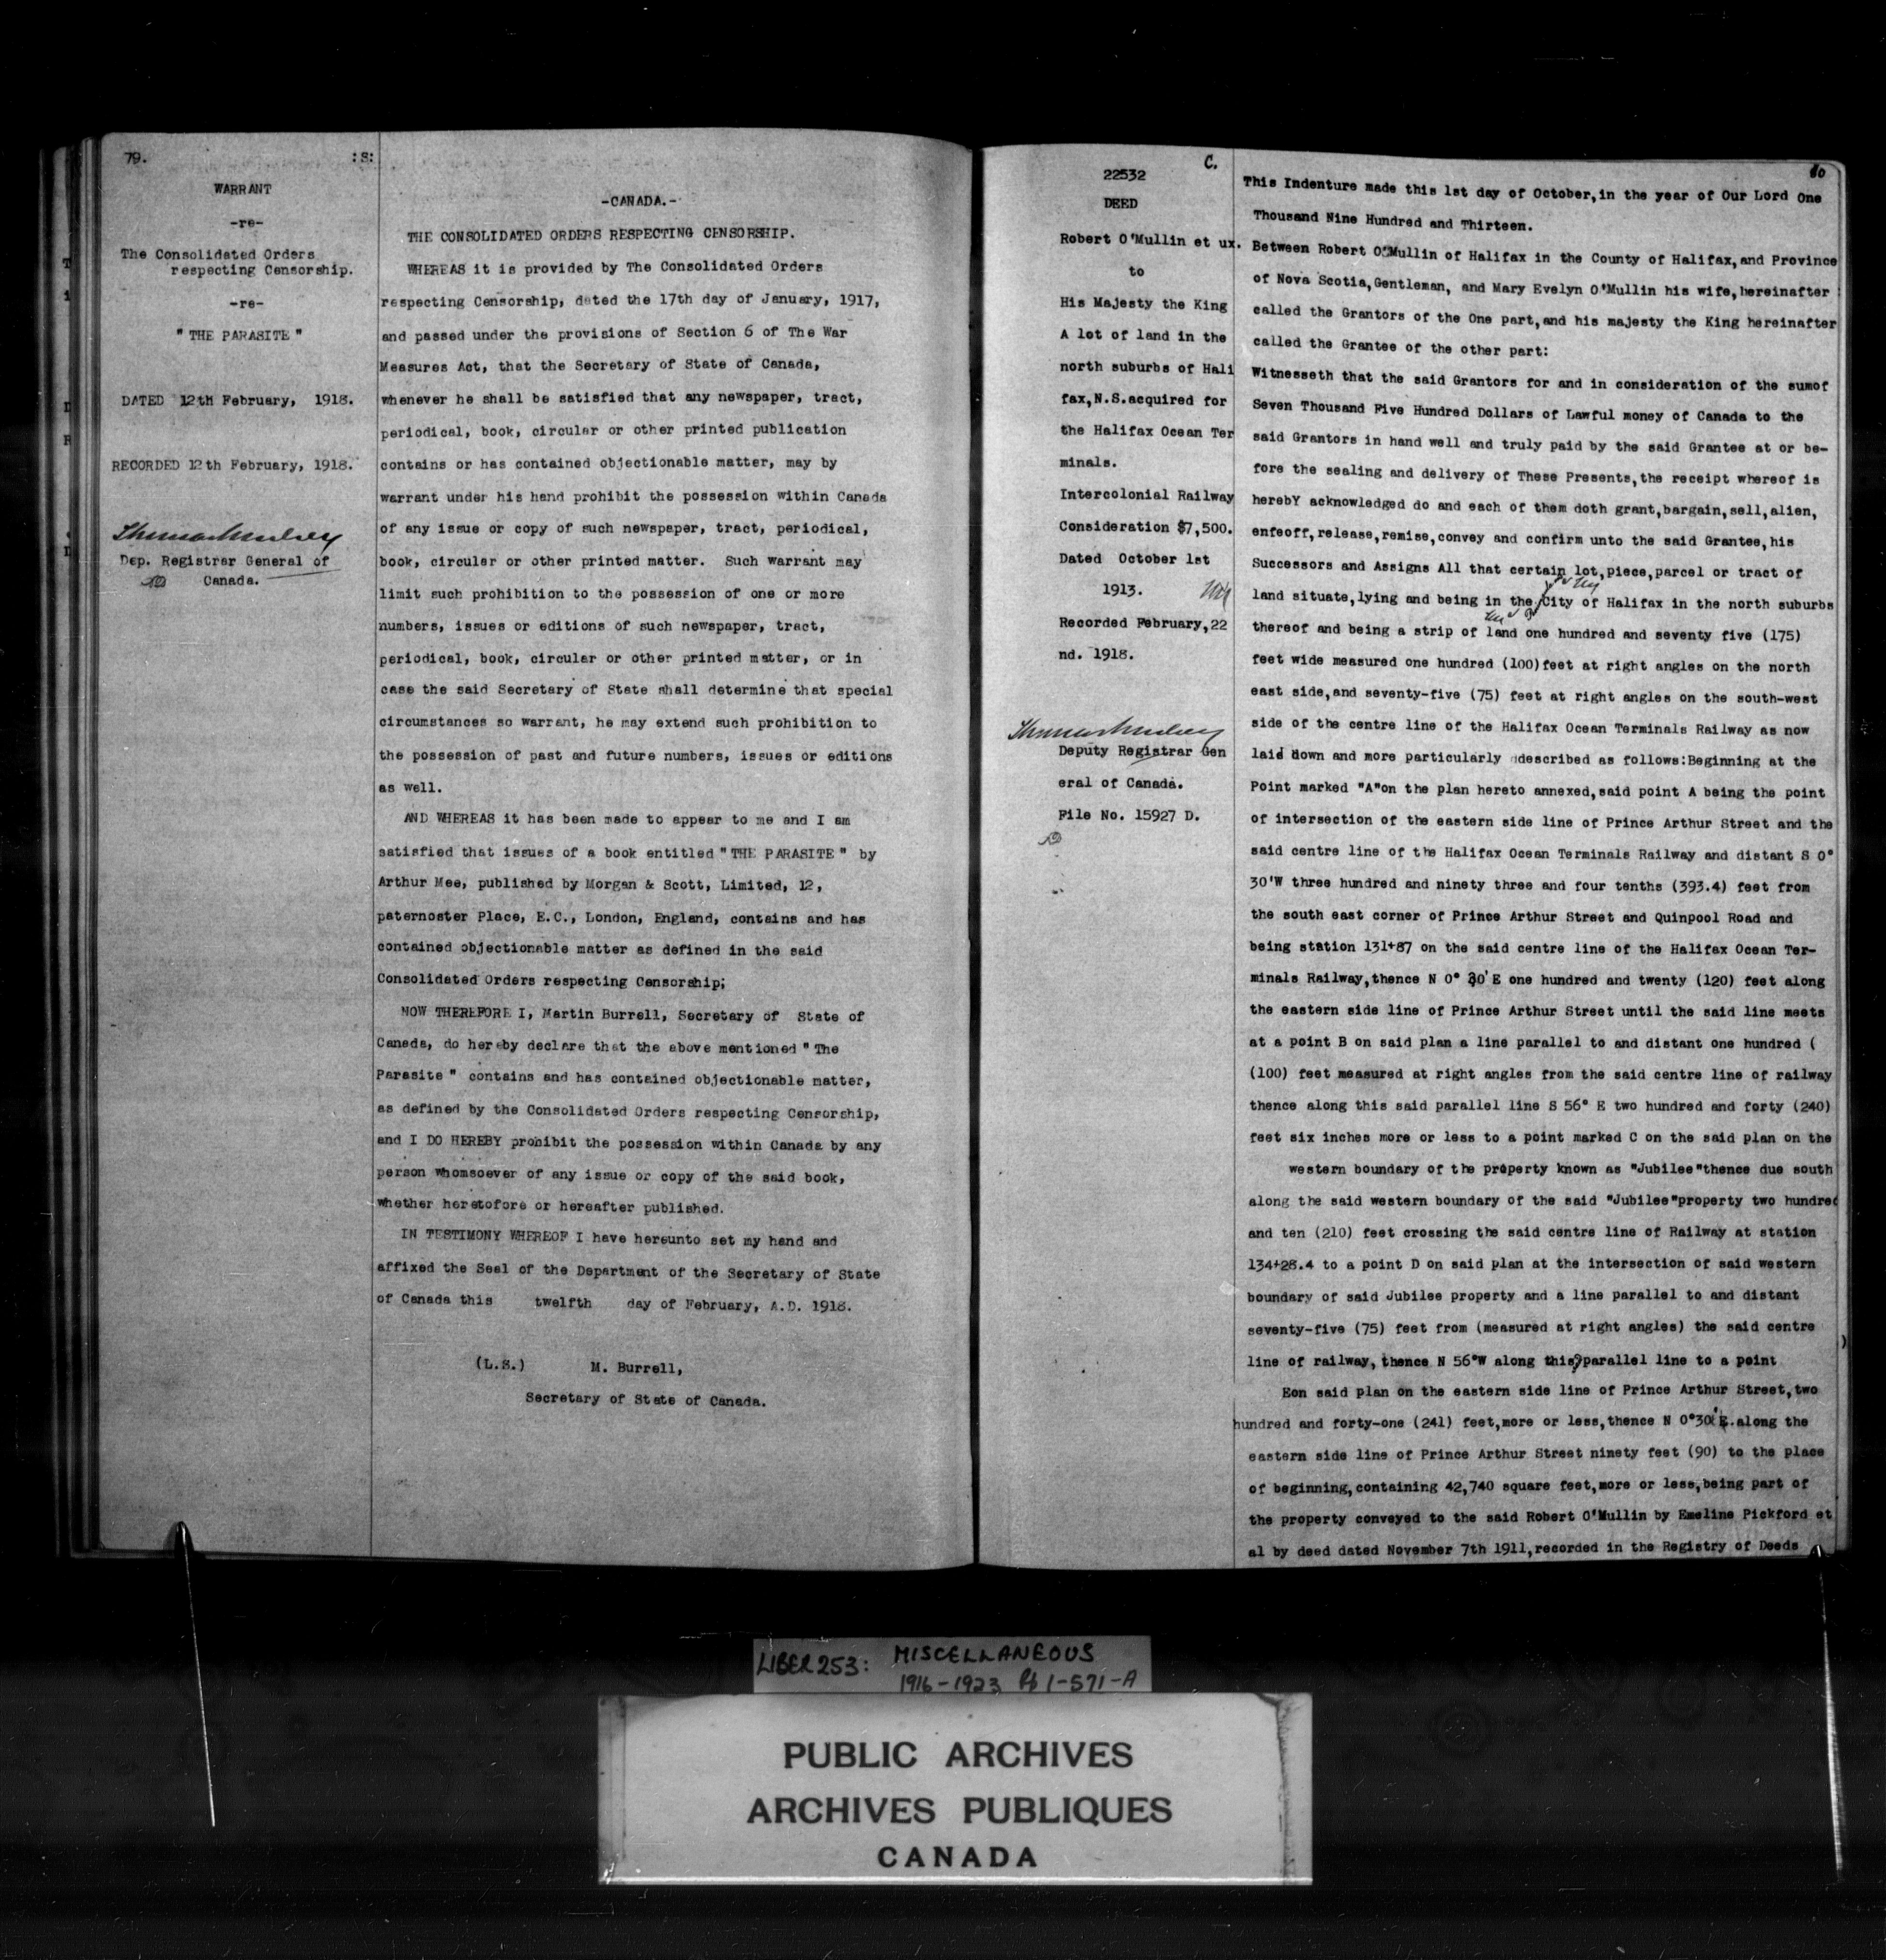 79. :S:
WARRANT
-re-
The Consolidated Orders
respecting Censorship.
-re-
" THE PARASITE "
DATED 12th February, 1918.
RECORDED 12th February, 1918.
Dep. Registrar General of
Canada.
-CANADA.-
THE CONSOLIDATED ORDERS RESPECTING CENSORSHIP.
WHEREAS it is provided by The Consolidated Orders
respecting Censorship, dated the 17th day of January, 1917,
and passed under the provisions of Section 6 of The War
Measures Act, that the Secretary of State of Canada,
whenever he shall be satisfied that any newspaper, tract,
periodical, book, circular or other printed publication
contains or has contained objectionable matter, may by
warrant under his hand prohibit the possession within Canada
of any issue or copy of such newspaper, tract, periodical,
book, circular or other printed matter. Such warrant may
limit such prohibition to the possession of one or more
numbers, issues or editions of such newspaper, tract,
periodical, book, circular or other printed matter, or in
case the said Secretary of State shall determine that special
circumstances so warrant, he may extend such prohibition to
the possession of past and future numbers, issues or editions
as well.
AND WHEREAS it has been made to appear to me and I am
satisfied that issues of a book entitled " THE PARASITE " by
Arthur Mee, published by Morgan & Scott, Limited, 12,
paternoster Place, E.C., London, England, contains and has
contained objectionable matter as defined in the said
Consolidated Orders respecting Censorship;
NOW THEREFORE I, Martin Burrell, Secretary of State of
Canada, do hereby declare that the above mentioned " The
Parasite " contains and has contained objectionable matter,
as defined by the Consolidated Orders respecting Censorship,
and I DO HEREBY prohibit the possession within Canada by any
person whomsoever of any issue or copy of the said book,
whether heretofore or hereafter published.
IN TESTIMONY WHEREOF I have hereunto set my hand and
affixed the Seal of the Department of the Secretary of State
of Canada this twelfth day of February, A.D. 1918.
(L.S.) M. Burrell,
Secretary of State of Canada.
C.
22532
DEED
Robert O'Mullin et ux.
to
His Majesty the King
A lot of land in the
north suburbs of Hali
fax,N.S.acquired for
the Halifax Ocean Ter
minals.
Intercolonial Railway
Consideration $7,500.
Dated October 1st
1913.
Recorded February,22
nd. 1918.
Deputy Registrar Gen
eral of Canada.
File No. 15927 D.
80
This Indenture made this 1st day of October,in the year of Our Lord One
Thousand Nine Hundred and Thirteen.
Between Robert O'Mullin of Halifax in the County of Halifax,and Province
of Nova Scotia,Gentleman, and Mary Evelyn O'Mullin his wife,hereinafter
called the Grantors of the One part,and his majesty the King hereinafter
called the Grantee of the other part:
Witnesseth that the said Grantors for and in consideration of the sumof
Seven Thousand Five Hundred Dollars of Lawful money of Canada to the
said Grantors in hand well and truly paid by the said Grantee at or be-
fore the sealing and delivery of These Presents,the receipt whereof is
herebY acknowledged do and each of them doth grant,bargain,sell,alien,
enfeoff,release,remise,convey and confirm unto the said Grantee,his
Successors and Assigns All that certain lot,piece,parcel or tract of
land situate,lying and being in the City of Halifax in the north suburbs
thereof and being a strip of land one hundred and seventy five (175)
feet wide measured one hundred (100)feet at right angles on the north
east side,and seventy-five (75) feet at right angles on the south-west
side of the centre line of the Halifax Ocean Terminals Railway as now
laid down and more particularly described as follows:Beginning at the
Point marked "A"on the plan hereto annexed,said point A being the point
of intersection of the eastern side line of Prince Arthur Street and the
said centre line of the Halifax Ocean Terminals Railway and distant S 0°
30'W three hundred and ninety three and four tenths (393.4) feet from
the south east corner of Prince Arthur Street and Quinpool Road and
being station 131+87 on the said centre line of the Halifax Ocean Ter-
minals Railway,thence N 0° 30' E one hundred and twenty (120) feet along
the eastern side line of Prince Arthur Street until the said line meets
at a point B on said plan a line parallel to and distant one hundred (
(100) feet measured at right angles from the said centre line of railway
thence along this said parallel line S 56° E two hundred and forty (240)
feet six inches more or less to a point marked C on the said plan on the
western boundary of the property known as "Jubilee"thence due south
along the said western boundary of the said "Jubilee"property two hundred
and ten (210) feet crossing the said centre line of Railway at station
134+28.4 to a point D on said plan at the intersection of said western
boundary of said Jubilee property and a line parallel to and distant
seventy-five (75) feet from (measured at right angles) the said centre
line of railway, thence N 56°W along this parallel line to a point
Eon said plan on the eastern side line of Prince Arthur Street,two
hundred and forty-one (241) feet,more or less,thence N 0°30'E.along the
eastern side line of Prince Arthur Street ninety feet (90) to the place
of beginning,containing 42,740 square feet,more or less,being part of
the property conveyed to the said Robert O'Mullin by Emeline Pickford et
al by deed dated November 7th 1911,recorded in the Registry of Deeds
LIBER 253: MISCELLANEOUS
1916-1923 Pp 1-571-A
PUBLIC ARCHIVES
ARCHIVES PUBLIQUES
CANADA